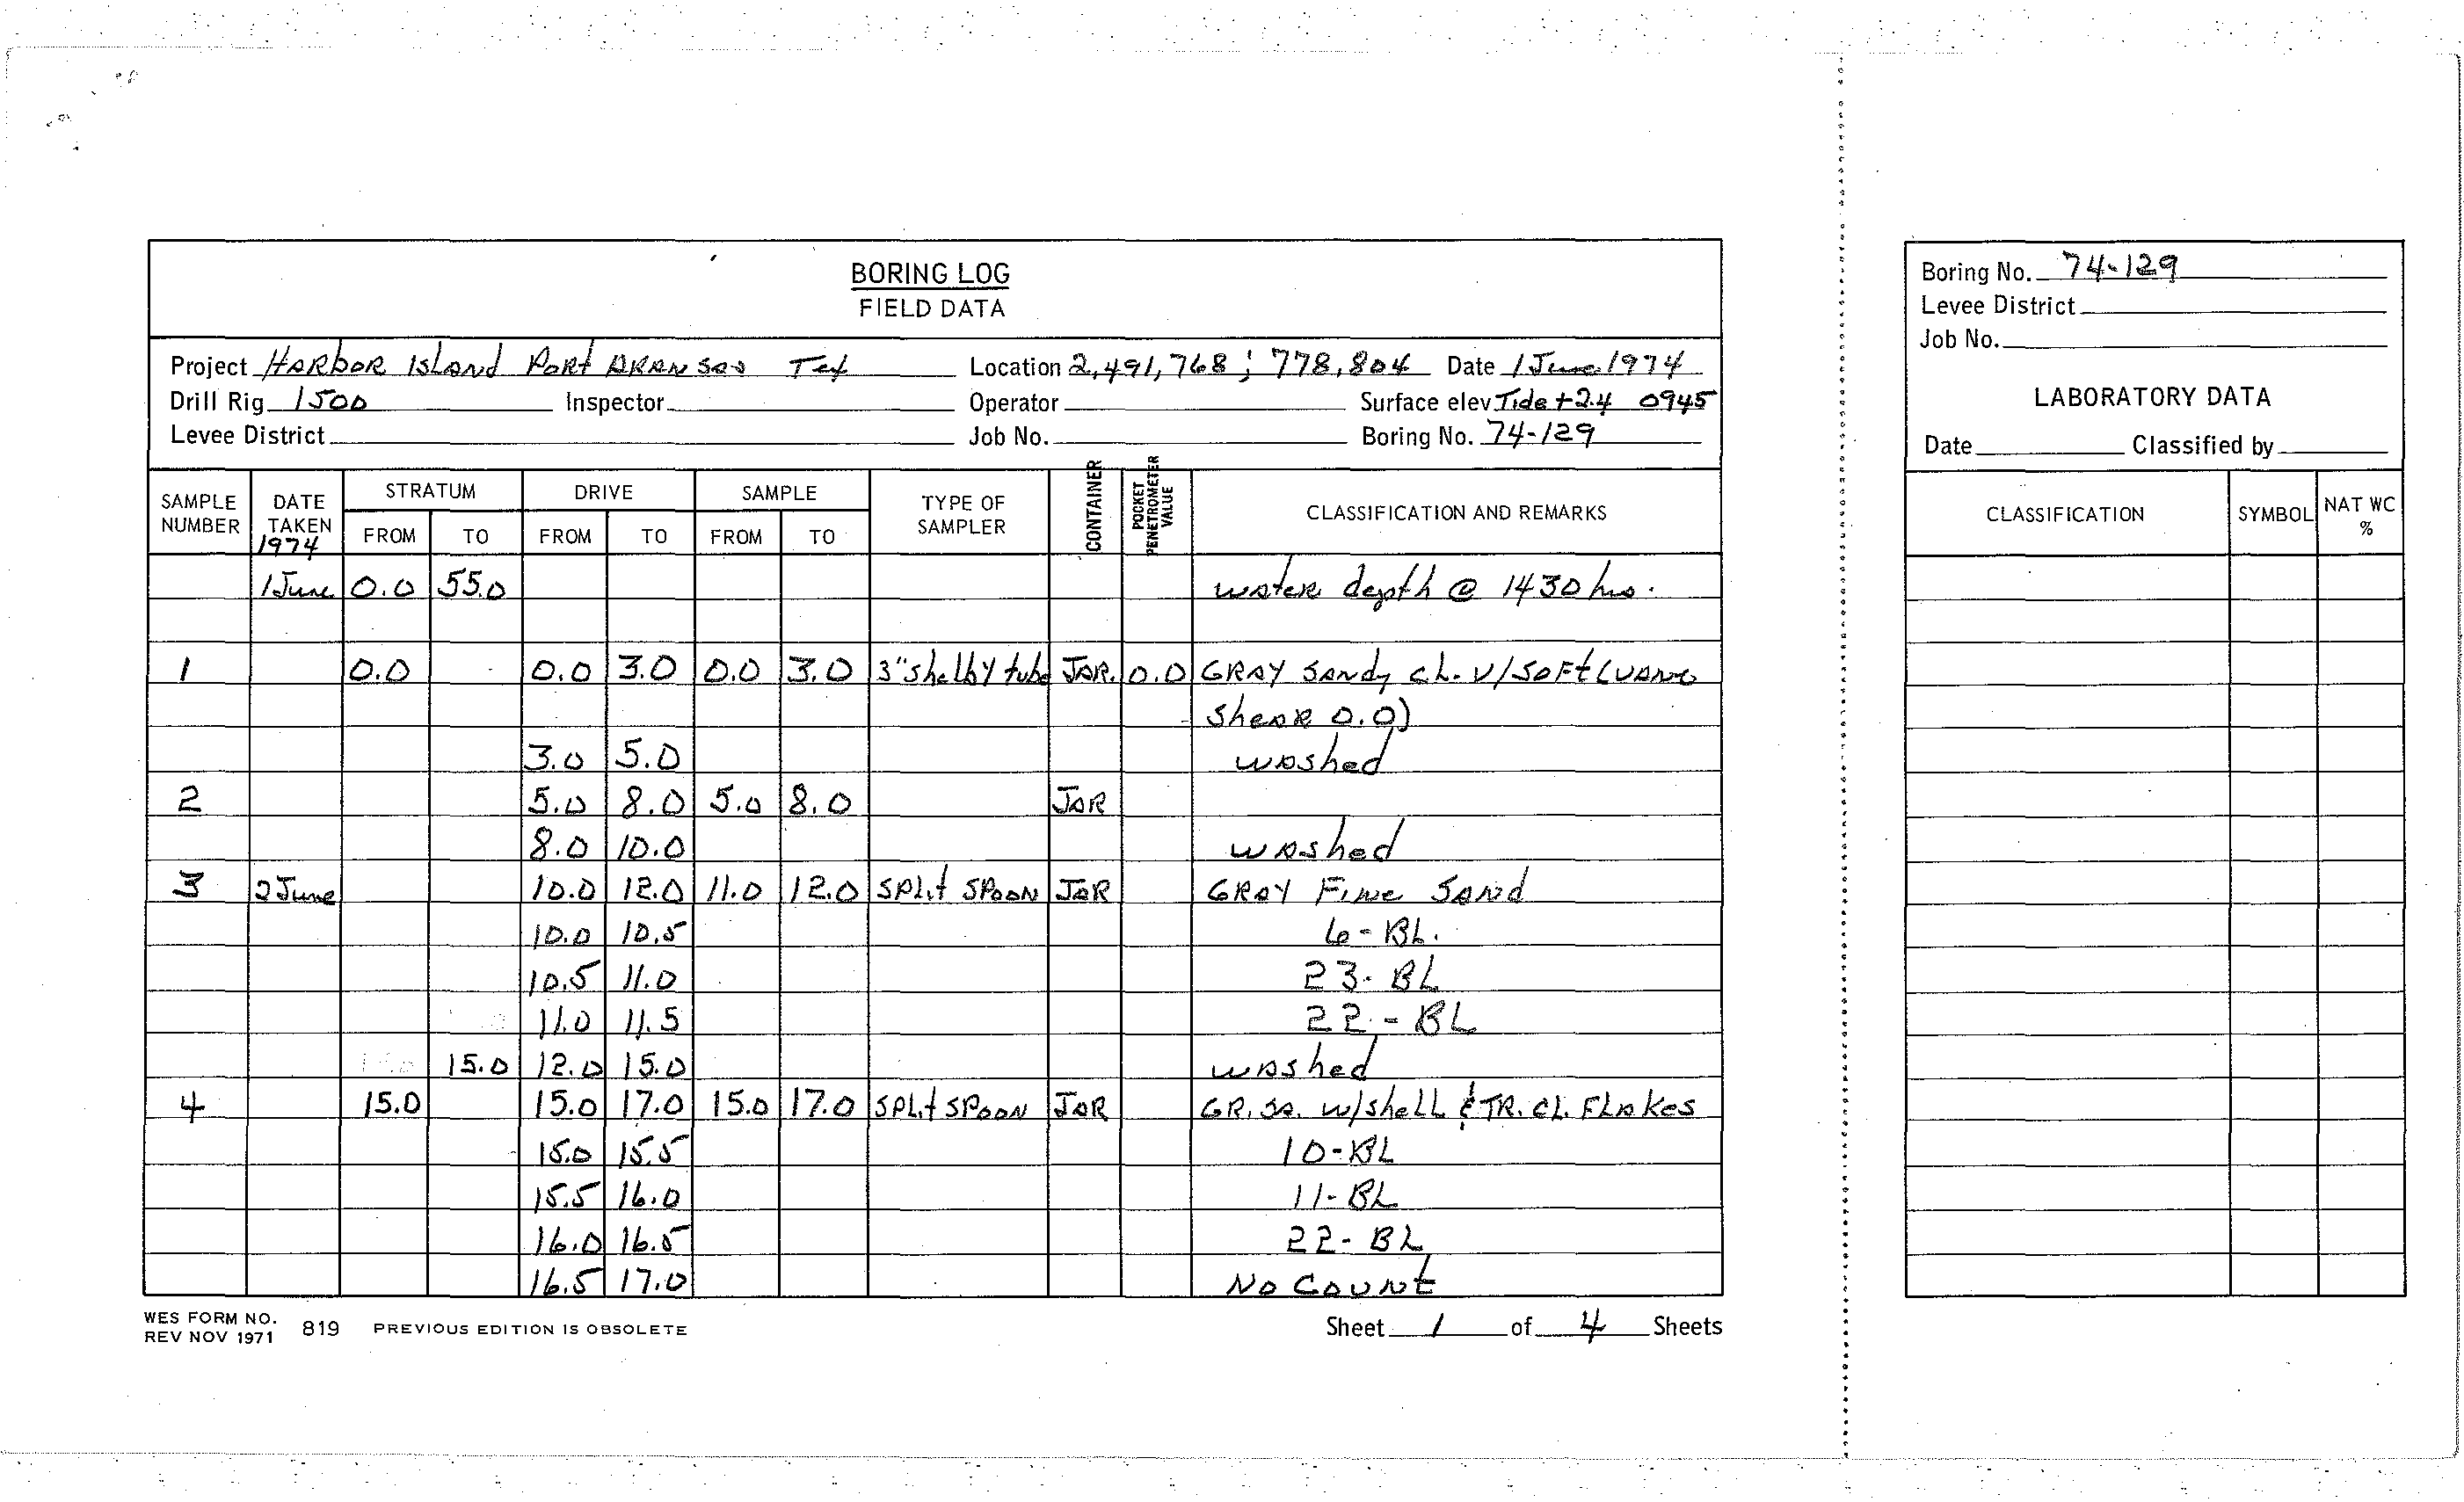 BORING LOG
FIELD DATA
Project HARbOR IsLand PoRt ARANSas Tex Location 2,491,768 ; 778,804 Date 1 June 1974
Drill Rig 1500 Inspector Operator Surface elev Tide +2.4 0945
Levee District Job No. Boring No. 74-129
SAMPLE NUMBER DATE TAKEN 1974 STRATUM FROM TO DRIVE FROM TO SAMPLE FROM TO TYPE OF SAMPLER CONTAINER POCKET PENETROMETER VALUE CLASSIFICATION AND REMARKS
1 June 0.0 55.0 water depth @ 1430 hrs.
1 0.0 0.0 3.0 0.0 3.0 3" shelby tube JAR. 0.0 GRAY SANdy cL. V/SoFt (VANE
sheaR 0.0)
3.0 5.0 washed
2 5.0 8.0 5.0 8.0 JAR
8.0 10.0 washed
3 2 June 10.0 12.0 11.0 12.0 SPLit SPOON JAR GRAY FiNe SANd
10.0 10.5 6-BL.
10.5 11.0 23-BL
11.0 11.5 22-BL
15.0 12.0 15.0 washed
4 15.0 15.0 17.0 15.0 17.0 SPLit SPOON JAR GR. SA. w/sheLL & TR. CL. FLAKes
15.0 15.5 10-BL
15.5 16.0 11-BL
16.0 16.5 22-BL
16.5 17.0 No CouNt
WES FORM NO. 819 PREVIOUS EDITION IS OBSOLETE
REV NOV 1971
Sheet 1 of 4 Sheets
Boring No. 74-129
Levee District
Job No.
LABORATORY DATA
Date Classified by
CLASSIFICATION SYMBOL NAT WC %